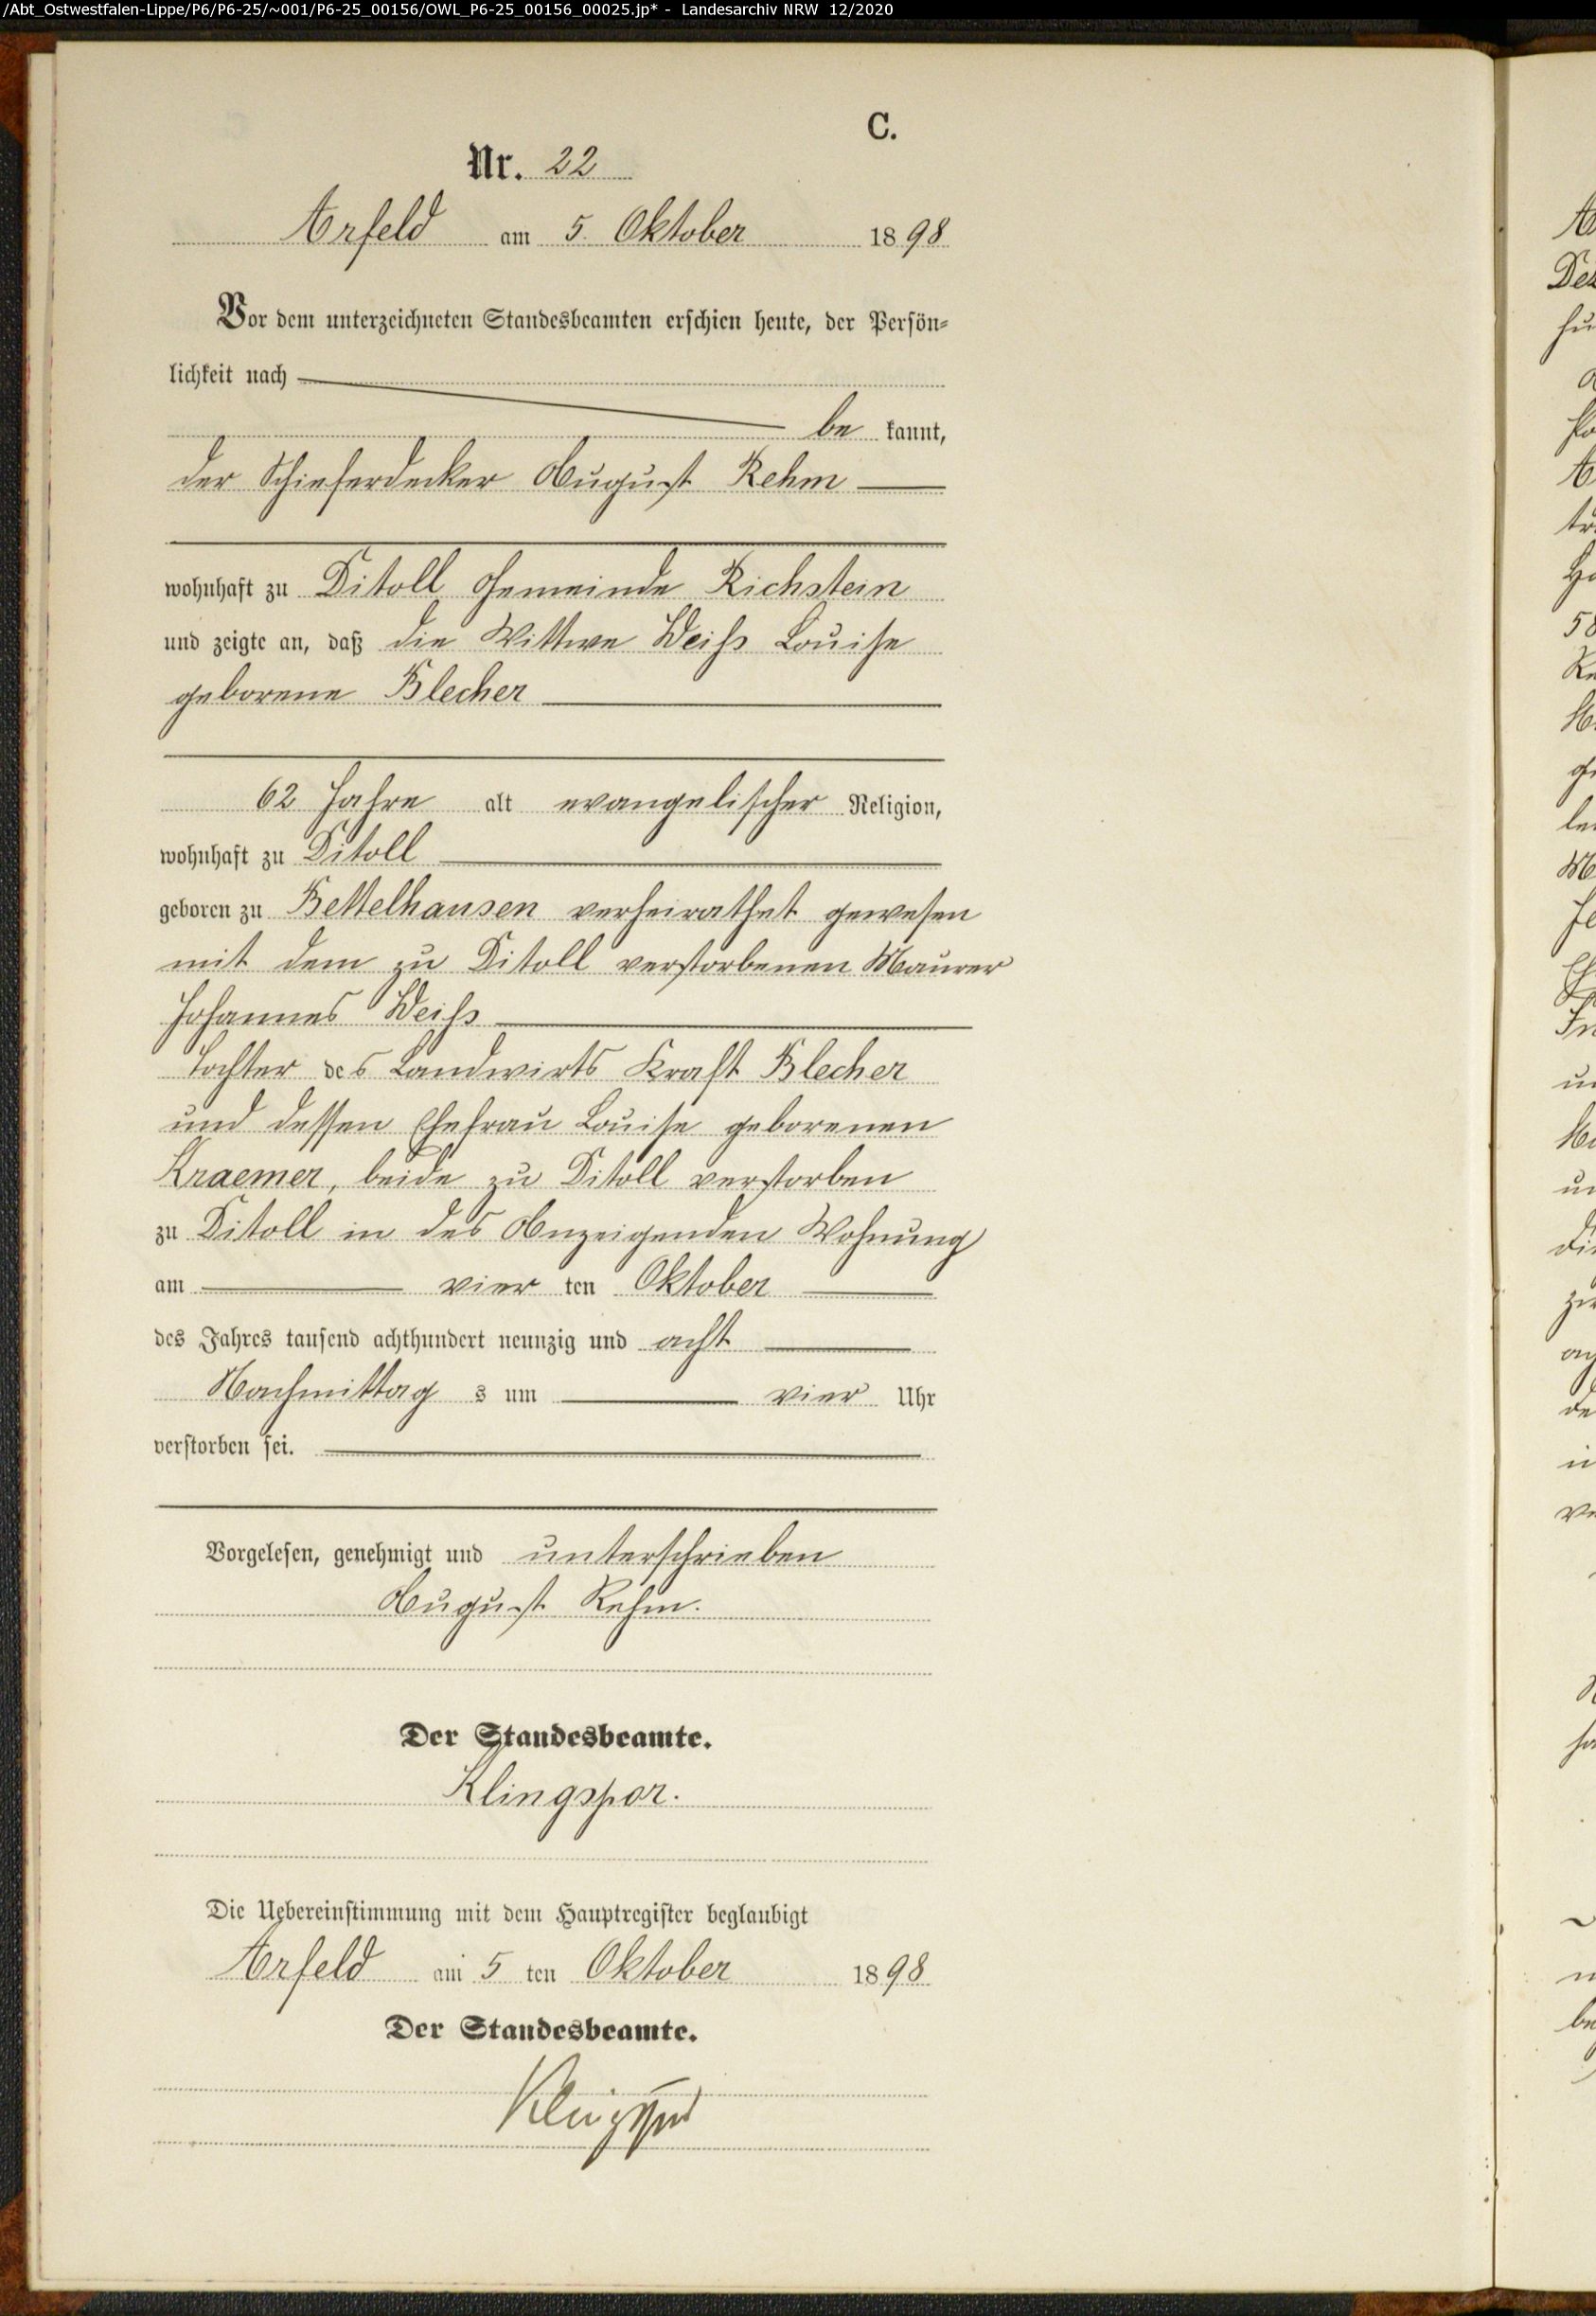 /Abt_Ostwestfalen-Lippe/P6/P6-25/~001/P6-25_00156/OWL_P6-25_00156_00025.jp* - Landesarchiv NRW 12/2020
C.
Nr. 22
Arfeld am 5. Oktober 1898
Vor dem unterzeichneten Standesbeamten erschien heute, der Persön-
lichkeit nach
be kannt,
der Schieferdecker August Rehm
wohnhaft zu Ditoll Gemeinde Richstein
und zeigte an, daß die Wittwe Weiß Louise
geborene Blecher
62 Jahre alt evangelischer Religion,
wohnhaft zu Ditoll
geboren zu Bettelhausen verheirathet gewesen
mit dem zu Ditoll verstorbenen Maurer
Johannes Weiß
Tochter des Landwirts Kraft Blecher
und dessen Ehefrau Louise geborenen
Kraemer, beide zu Ditoll verstorben
zu Ditoll in des Anzeigenden Wohnung
am vier ten Oktober
des Jahres tausend achthundert neunzig und acht
Nachmittag s um vier Uhr
verstorben sei.
Vorgelesen, genehmigt und unterschrieben
August Rehm.
Der Standesbeamte.
Klingspor.
Die Uebereinstimmung mit dem Hauptregister beglaubigt
Arfeld am 5 ten Oktober 1898
Der Standesbeamte.
Klingspor